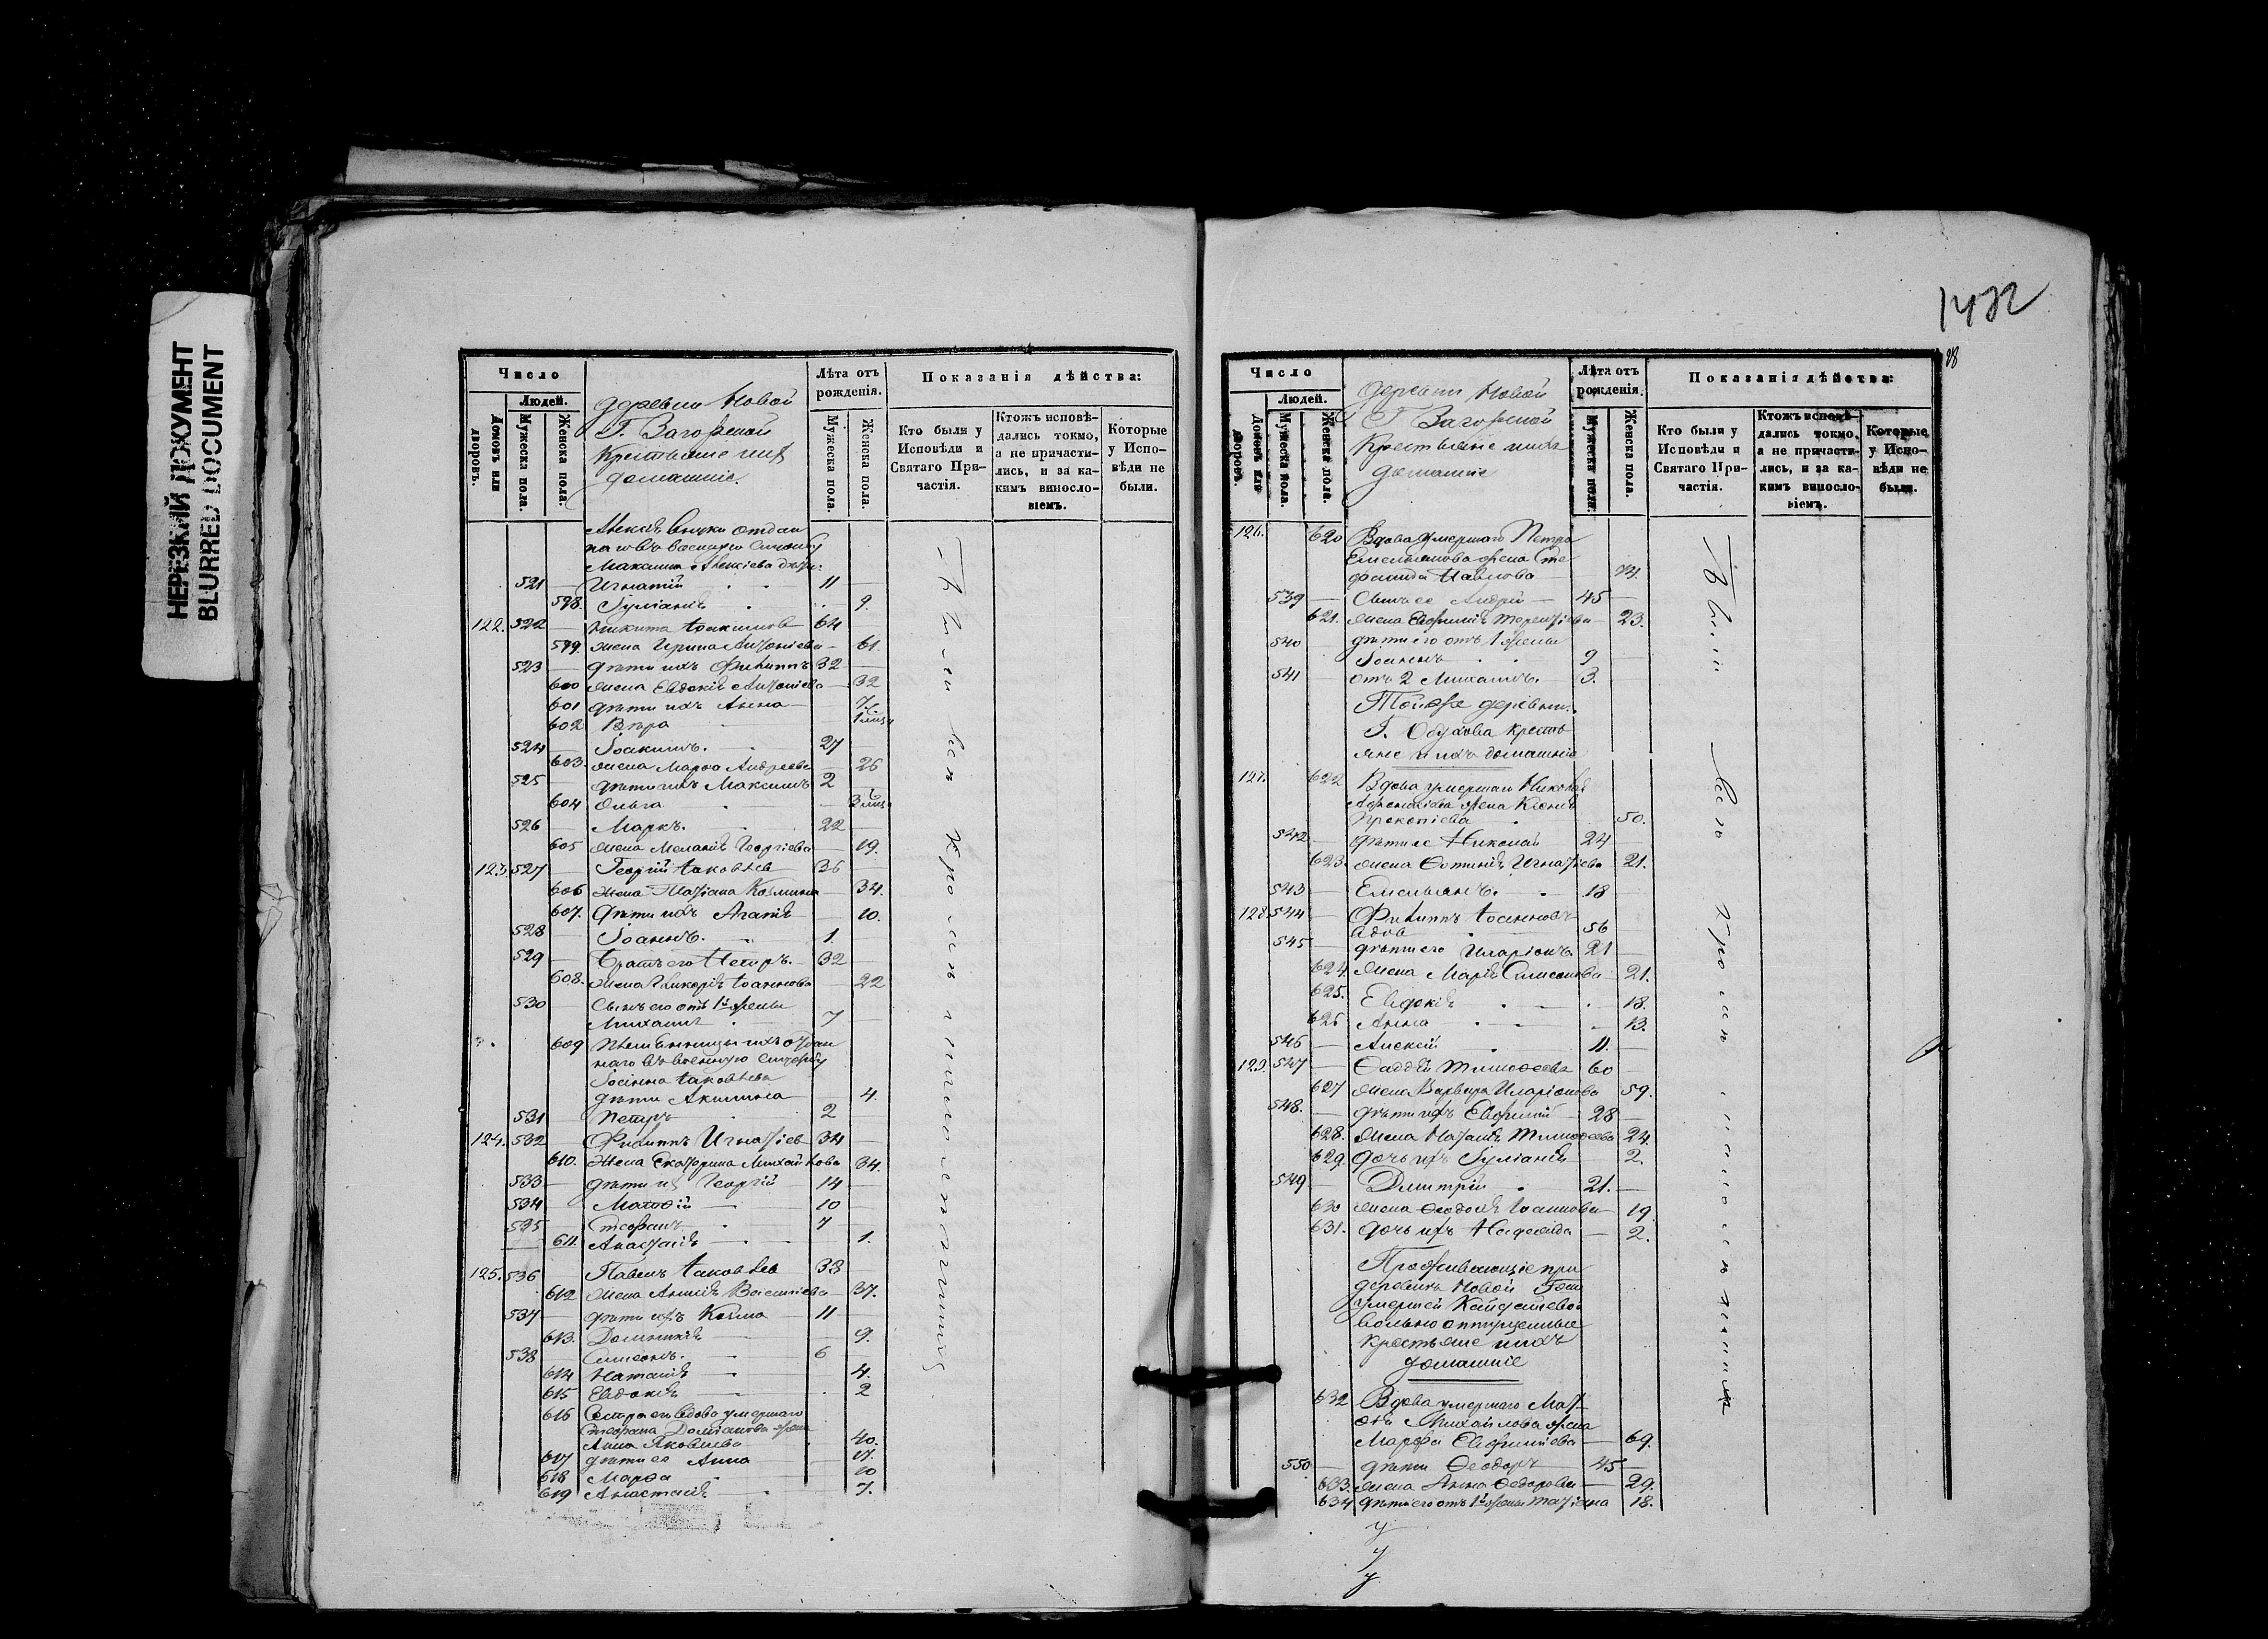 НЕРЕЗКИЙ ДОКУМЕНТ
BLURRED DOCUMENT
Число
Людей.
Домовъ или дворовъ.
Мужеска пола.
Женска пола.
деревни Новой
Г. Загорской
Крестьяне ихъ
домашніе.
Лѣта отъ рожденія.
Мужеска пола.
Женска пола.
Показанія дѣйства:
Кто были у Исповѣди и Святаго Причастія.
Ктожъ исповѣдались токмо, а не причастились, и за какимъ винословіемъ.
Которые у Исповѣди не были.
Максима Алексіева
521 Игнатій 11
598. Іуліанія 9.
122. 522 Никита Іоакимовъ 64
599. Жена Ирина Антоніева 61.
523 дѣти ихъ Филиппъ 32
600 Жена Евдокія Антоніева 32
601 дѣти ихъ Анна 7.
602 Вѣра
524 Іоакимъ. 27
603. Жена Марѳа Андреева 26
525 дѣти ихъ Максимъ 2
604 Ольга
526 Маркъ. 22
605 Жена Меланія Георгіева 19.
123. 527 Георгій Іаковлевъ 36
606 Жена Татіана Козмина 34.
607. дѣти ихъ Агапія 10.
528 Іоаннъ. 1.
529 Братъ его Петръ. 32
608. Жена Гликерія Іоаннова 22
530 Сынъ его отъ 1й жены
Михаилъ 7
609 Племянницы ихъ отдан
наго въ военную службу
Іоанна Іаковлева
дѣти Акилина 4.
531 Петръ 2
124. 532 Филиппъ Игнатіевъ 34
610. Жена Екатерина Михайлова 34.
533 дѣти ихъ Георгій 14
534 Матѳій 10
535 Стефанъ 7
611. Анастасія 1.
125. 536 Павелъ Іаковлевъ 38
612 Жена Анисія Василіева 37.
537 дѣти ихъ Козма 11
613. Домникія 9.
538 Симеонъ. 6
614 Наталія 4.
615 Евдокія 2
616 Сестра его вдова умершаго
Стефана Доміанова жена
Анна Яковлева 40.
617 дѣти ея Анна 17.
618 Марѳа 10
619 Анастасія 7.
1472
28
Число
Людей.
Домовъ или дворовъ.
Мужеска пола.
Женска пола.
деревни Новой
Г. Загорской
Крестьяне ихъ
домашніе
Лѣта отъ рожденія.
Мужеска пола.
Женска пола.
Показанія дѣйства:
Кто были у Исповѣди и Святаго Причастія.
Ктожъ исповѣдались токмо, а не причастились, и за какимъ винословіемъ.
Которые у Исповѣди не были.
126. 620 Вдова умершаго Петра
Емельянова жена Сте
фанида Павлова
539 Сынъ ее Андрей 45
621. Жена Евфимія Терентіева 23.
540 дѣти его отъ 1 жены
Іоаннъ 9
541 отъ 2 Михаилъ. 3.
Тойже деревни.
Г. Обухова кресть
яне и ихъ домашніе
127. 622 Вдова умершаго Николая
Афанасіева жена Ксенія
Прокопіева 50.
542 дѣти ее Николай 24
623. Жена Фотинія Игнатіева 21.
543 Емельянъ. 18
128. 544 Филиппъ Іоанновъ
вдовъ 56
545 дѣти его Иларіонъ 21
624. Жена Марія Симеонова 21.
625. Евдокія 18.
626 Анна 13.
546 Алексій 11.
129. 547 Ѳаддей Тимоѳеевъ 60
627 Жена Варвара Иларіонова 59.
548. дѣти ихъ Евфимій 28
628. Жена Наталія Тимоѳеева 24.
629. дочь ихъ Іуліанія 2.
549 Димитрій 21.
630 Жена Ѳеодосія Іоаннова 19.
631. дочь ихъ Надежда 2.
Проживающіе при
деревнѣ Новой Гжи
умершей Кайдашевой
вольно отпущенные
крестьяне и ихъ
домашніе
632 Вдова умершаго Мат
ѳія Михайлова жена
Марѳа Евфиміева 69.
550 дѣти Ѳеодоръ 45
633. Жена Анна Ѳедорова 29.
634 дѣти его отъ 1й жены Татіана 18.